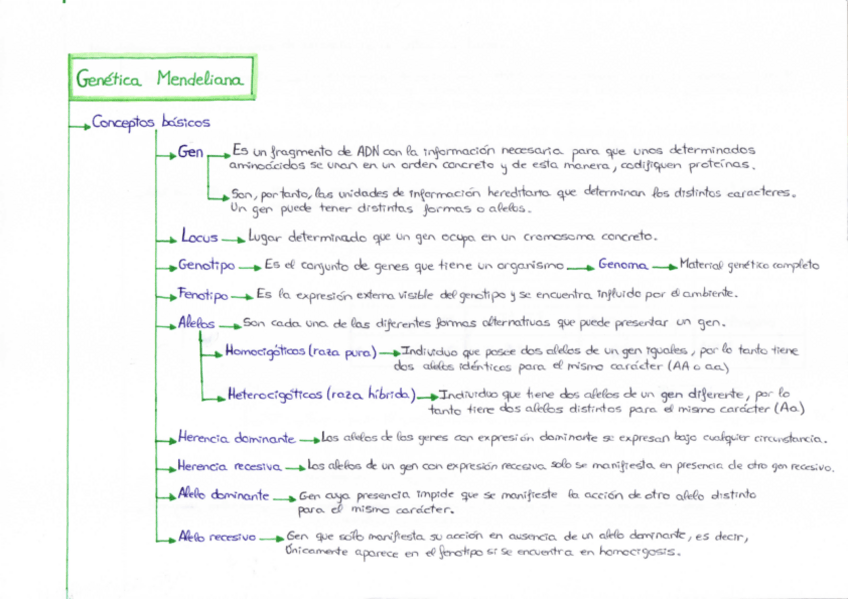 Genética Mendeliana
Conceptos básicos
Gen → Es un fragmento de ADN con la información necesaria para que unos determinados
aminoácidos se unan en un orden concreto y de esta manera, codifiquen proteínas.
Son, por tanto, las unidades de información hereditaria que determinan los distintos caracteres.
Un gen puede tener distintas formas o alelos.
Locus → Lugar determinado que un gen ocupa en un cromosoma concreto.
Genotipo → Es el conjunto de genes que tiene un organismo → Genoma → Material genético completo
Fenotipo → Es la expresión externa visible del genotipo y se encuentra influido por el ambiente.
Alelos → Son cada una de las diferentes formas alternativas que puede presentar un gen.
Homocigóticos (raza pura) → Individuo que posee dos alelos de un gen iguales, por lo tanto tiene
dos alelos idénticos para el mismo carácter (AA o aa)
Heterocigóticos (raza híbrida) → Individuo que tiene dos alelos de un gen diferente, por lo
tanto tiene dos alelos distintos para el mismo carácter (Aa)
Herencia dominante → Los alelos de los genes con expresión dominante se expresan bajo cualquier circunstancia.
Herencia recesiva → Los alelos de un gen con expresión recesiva solo se manifiesta en presencia de otro gen recesivo.
Alelo dominante → Gen cuya presencia impide que se manifieste la acción de otro alelo distinto
para el mismo carácter.
Alelo recesivo → Gen que sólo manifiesta su acción en ausencia de un alelo dominante, es decir,
únicamente aparece en el fenotipo si se encuentra en homocigosis.